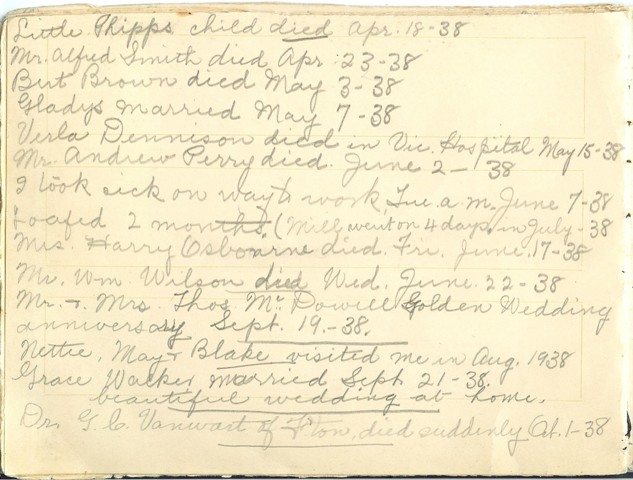 Little Phipps child died Apr. 18-38
Mr. Alfred Smith died Apr 23-38
Burt Brown died May 3-38
Gladys married May 7-38
Verla Dennison died in Vic. Hospital May 15-38
Mr. Andrew Perry died. June 2-38
I took sick on way to work, Tue. a.m. June 7-38
Loafed 2 months. (Mill went on 4 days in July-38
Mrs. Harry Osbourne died. Fri. June. 17-38
Mr. Wm. Wilson died Wed. June. 22-38
Mr. + Mrs. Thos. McDowell Golden Wedding
anniversary Sept. 19.-38.
Nettie, May + Blake visited me in Aug. 1938
Grace Walker married Sept. 21-38.
beautiful wedding at home.
Dr. G. C. Vanwart of F'ton, died suddenly Oct. 1-38